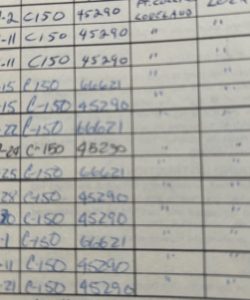 -2 C150 45290 LOVELAND
-11 C150 45290 " "
-11 C150 45290 " "
-15 C-150 66621 " "
-15 C-150 45290 " "
-22 C-150 66621 " "
-24 C-150 45290 " "
-25 C-150 66621 " "
-28 C-150 45290 " "
C-150 45290 " "
-1 C-150 66621 " "
-11 C-150 45290 " "
-21 C-150 45290 " "